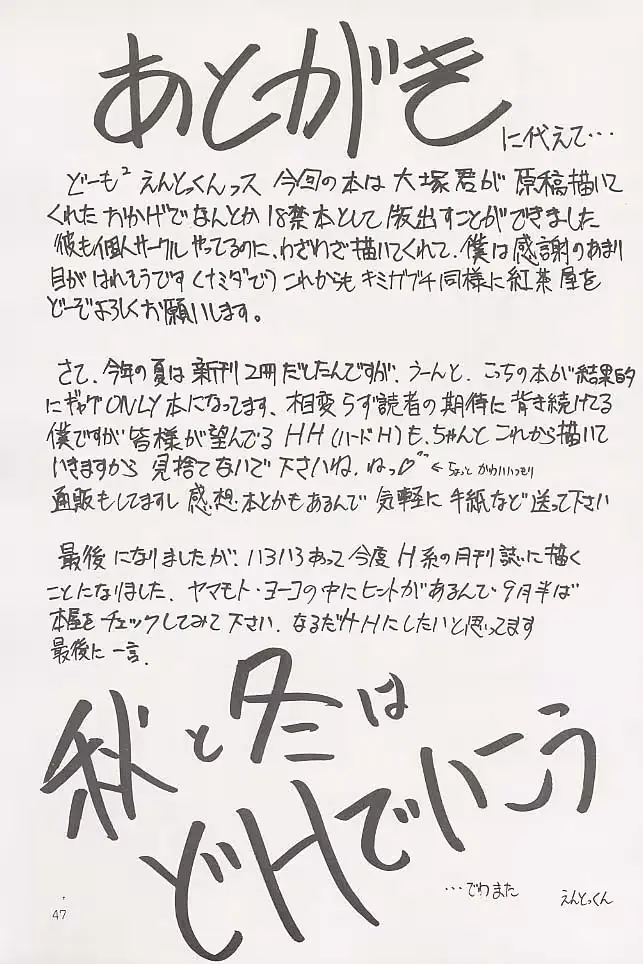 あとがき
に代えて…
どーも² えんとっくんっス 今回の本は 大塚君が 原稿描いて
くれた おかげで なんとか 18禁本として 版出すことができました
彼も個人サークル やってるのに、わざわざ描いてくれて、僕は感謝のあまり
目が はれそうです（ナミダで）これからも キミガブチ同様に 紅茶屋を
どーぞよろしくお願いします。
さて、今年の夏は 新刊2冊だしたんですが、うーんと、こっちの本が結果的
にギャグONLY本になってます、相変らず読者の期待に背き続けてる
僕ですが 皆様が望んでる HH（ハードH）も、ちゃんと これから描いて
いきますから 見捨てないで 下さいね、ねっ♡ ←ちょっと かわいいつもり
通販もしてますし 感想本とかもあるんで 気軽に 手紙など 送って下さい
最後になりましたが、いろいろあって 今度 H系の月刊誌に描く
ことになりました、ヤマモト・ヨーコの中にヒントがあるんで 9月半ば
本屋をチェックしてみて下さい、なるだけHにしたいと思ってます
最後に一言、
秋と冬は
どHでいこう
…でわまた えんとっくん
47